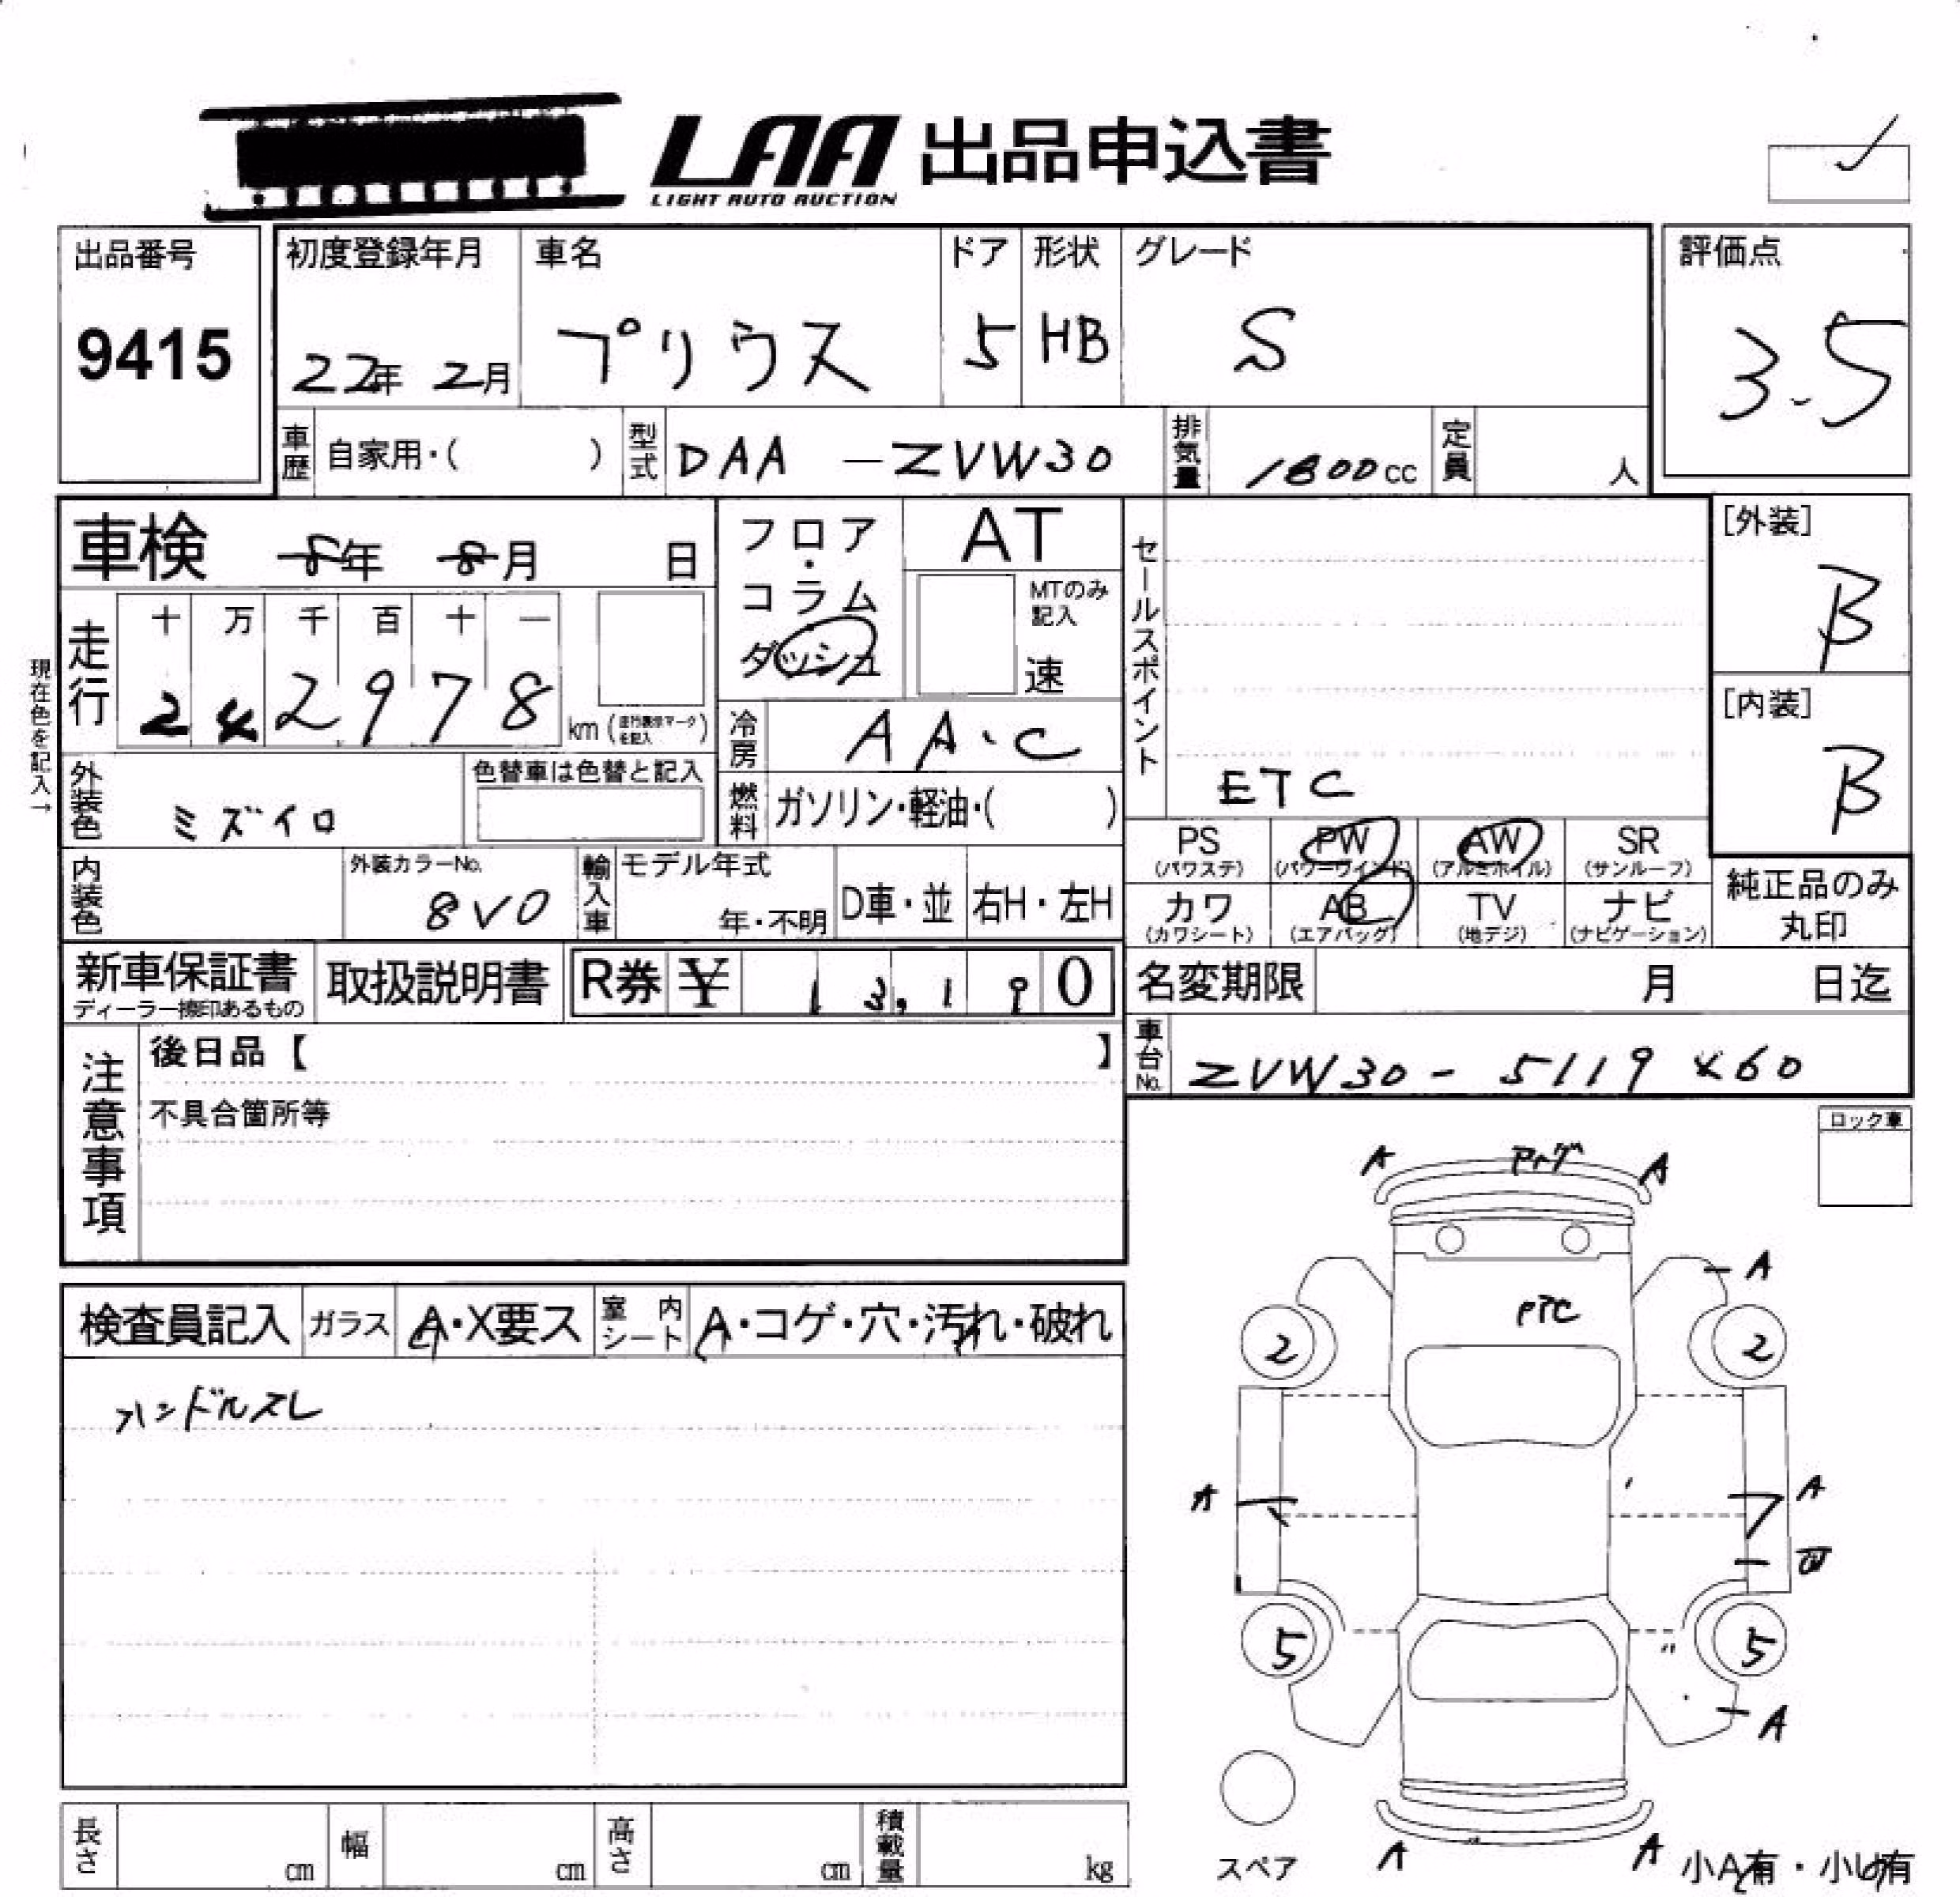 LAA 出品申込書
LIGHT AUTO AUCTION
出品番号
9415
初度登録年月
22年 2月
車名
プリウス
ドア
5
形状
HB
グレード
S
評価点
3.5
車歴 自家用・( )
型式 DAA - ZVW30
排気量 1800cc
定員 人
車検 8年 8月 日
現在色を記入→
走行
十 万 千 百 十 一
2 4 2 9 7 8
km
フロア・コラム
ダッシュ
AT
MTのみ記入
速
冷房 AA・C
燃料 ガソリン・軽油・( )
セールスポイント
ETC
[外装]
B
[内装]
B
外装色 ミズイロ
色替車は色替と記入
内装色
外装カラーNo.
8V0
輸入車
モデル年式
年・不明
D車・並
右H・左H
PS
(パワステ)
PW
(パワーウインド)
AW
(アルミホイル)
SR
(サンルーフ)
カワ
(カワシート)
AB
(エアバッグ)
TV
(地デジ)
ナビ
(ナビゲーション)
純正品のみ
丸印
新車保証書
ディーラー捺印あるもの
取扱説明書
R券 ¥ 13,190
名変期限 月 日迄
車台No. ZVW30 - 5119460
注意事項
後日品【 】
不具合箇所等
ロック車
検査員記入
ガラス
A・X要ス
室内シート
A・コゲ・穴・汚れ・破れ
ハンドルスレ
A
A
A
2
2
A
A
5
5
A
スペア
A
A
小A有・小U有
長さ cm
幅 cm
高さ cm
積載量 kg